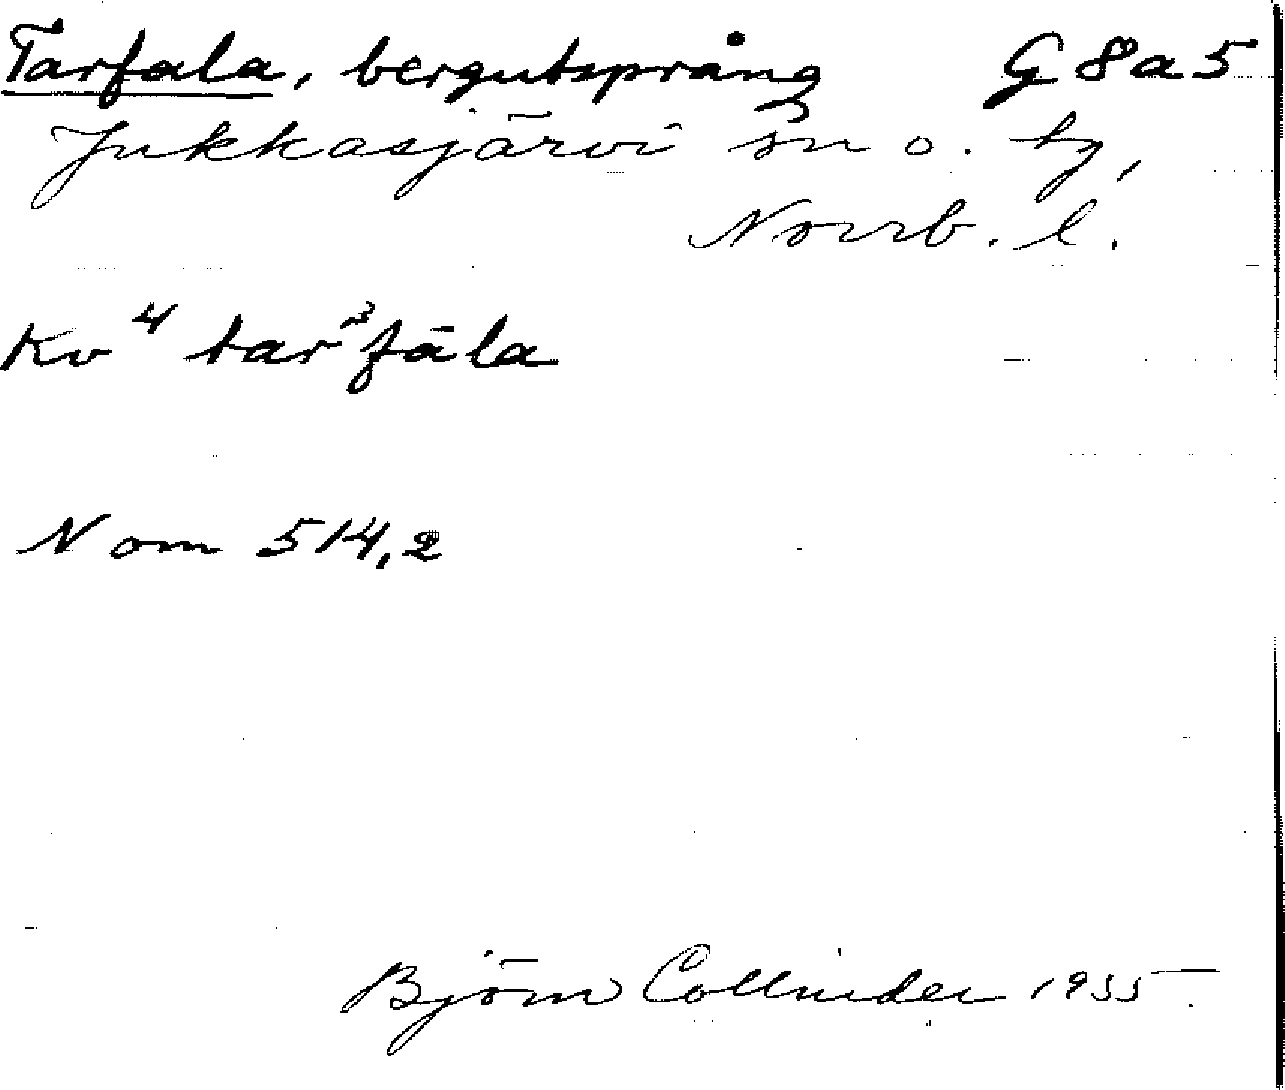 Tarfala, bergutsprång G 8 a 5
Jukkasjärvi sn o. tg,
Norrb. l.
Kv ⁴ tar²fāla
N om 514,2
Björn Collinder 1955